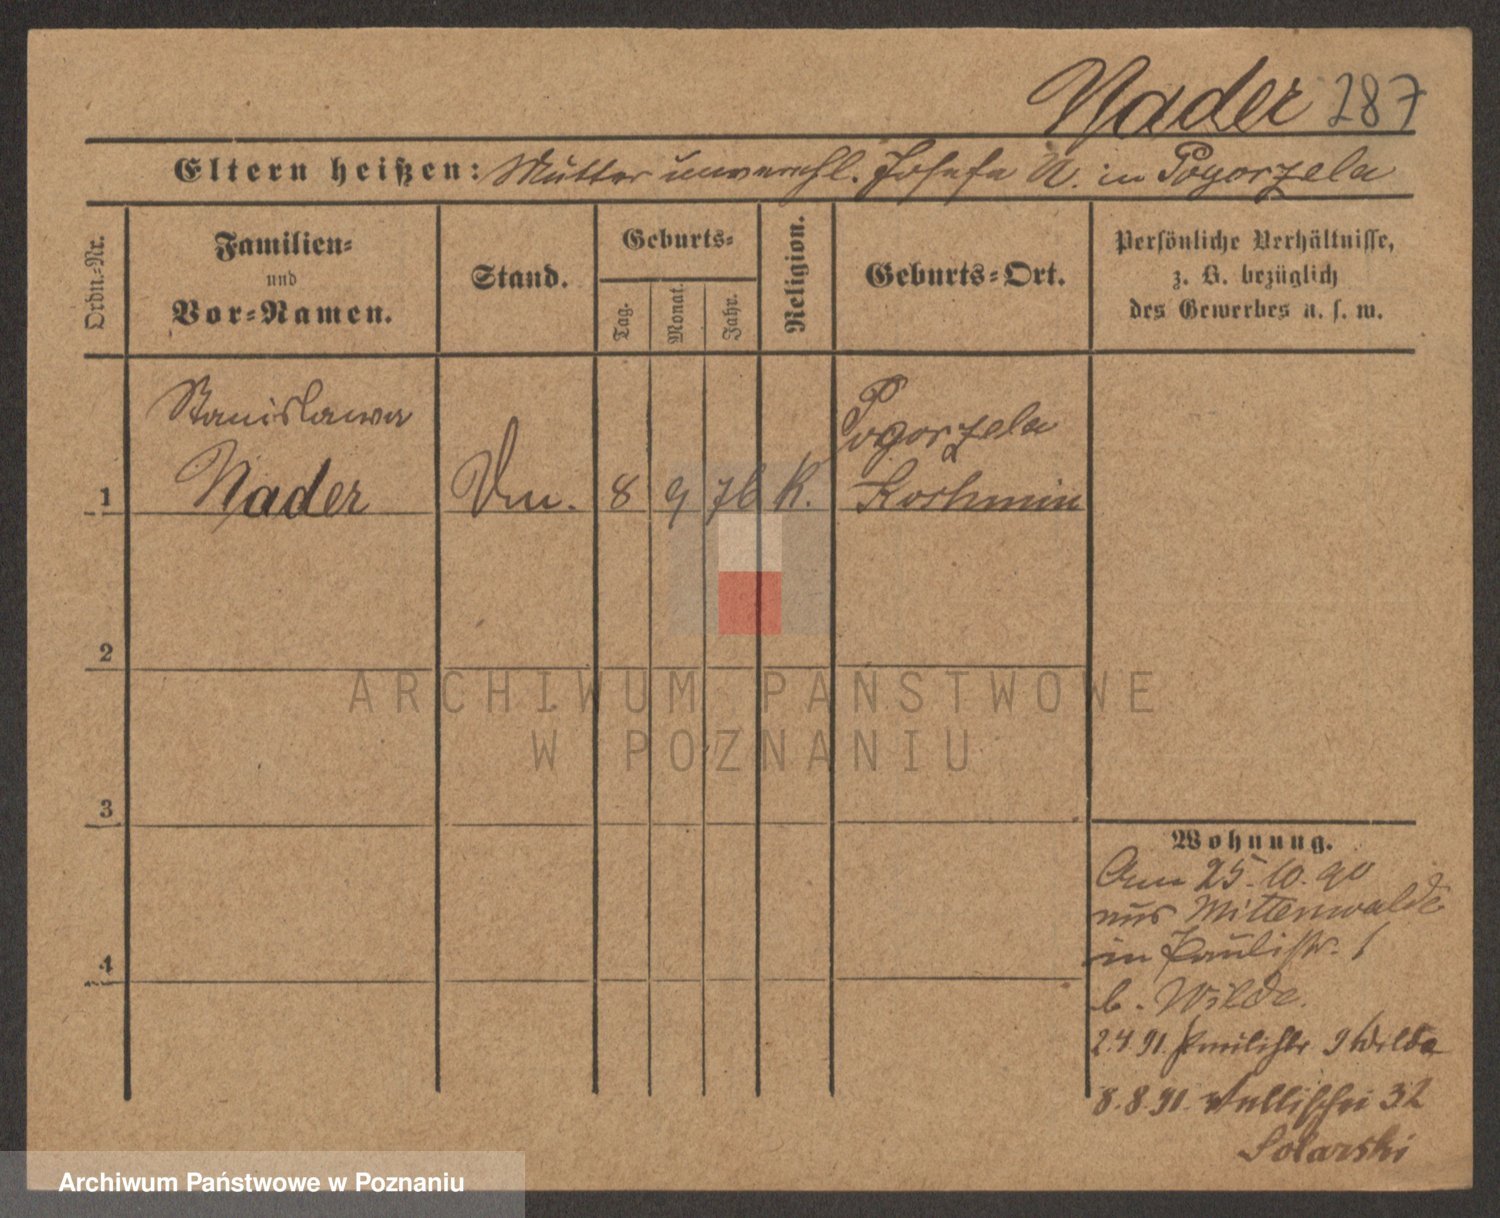 Nader 287
Eltern heißen: Mutter unverehl. Josefa N. in Pogorzela
Ordn.-Nr.
Familien-
und
Vor-Namen.
Stand.
Geburts-
Tag.
Monat.
Jahr.
Religion.
Geburts-Ort.
Persönliche Verhältnisse,
z. B. bezüglich
des Gewerbes u. s. w.
Stanislawa
Nader
Pogorzela
1 8 9 76 K. Koschmin
2
3
4
Wohnung.
Am 25.10.90
aus Mittenwalde
in Paulistr. 1
b. Wilde.
2.4.91. Paulistr 9 Wilda
8.8.91. Wallischei 32
Solarski
ARCHIWUM PAŃSTWOWE
W POZNANIU
Archiwum Państwowe w Poznaniu